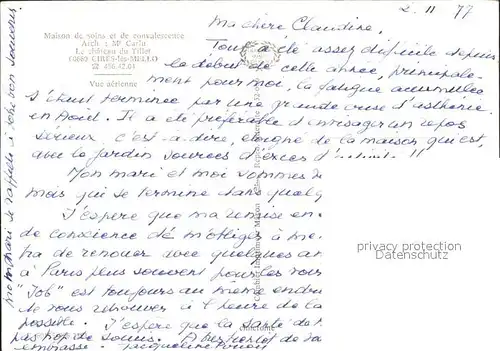 2. 11 77
Ma chère Claudine,
Maison de soins et de convalescence
Arch : Mr Carlu
Le château du Tillet
60660 CIRES-lès-MELLO
☎ 456.42.04
Vue aérienne
Tout a été assez difficile depuis
le début de cette année, principale-
ment pour moi, la fatigue accumulée
s'étant terminée par une grande crise d'asthénie
en Août. Il a été préférable d'envisager un repos
sérieux c'est à dire, éloigné de la maison qui est,
avec le jardin sources d'excès d'activité !!
Mon mari et moi sommes
mois qui se termine dans quelq
J'espère que ma remise en
de conscience de m'obliger à me
tra de renouer avec quelques am
à Paris plus souvent pour les voir
"Job" est toujours au même endro
de nous retrouver à l'heure de la
possible. J'espère que la santé de
pas trop de soucis. A bientôt de
embrasse. Jacqueline
mon mari se rappelle à votre bon souvenir.
privacy protection
Datenschutz